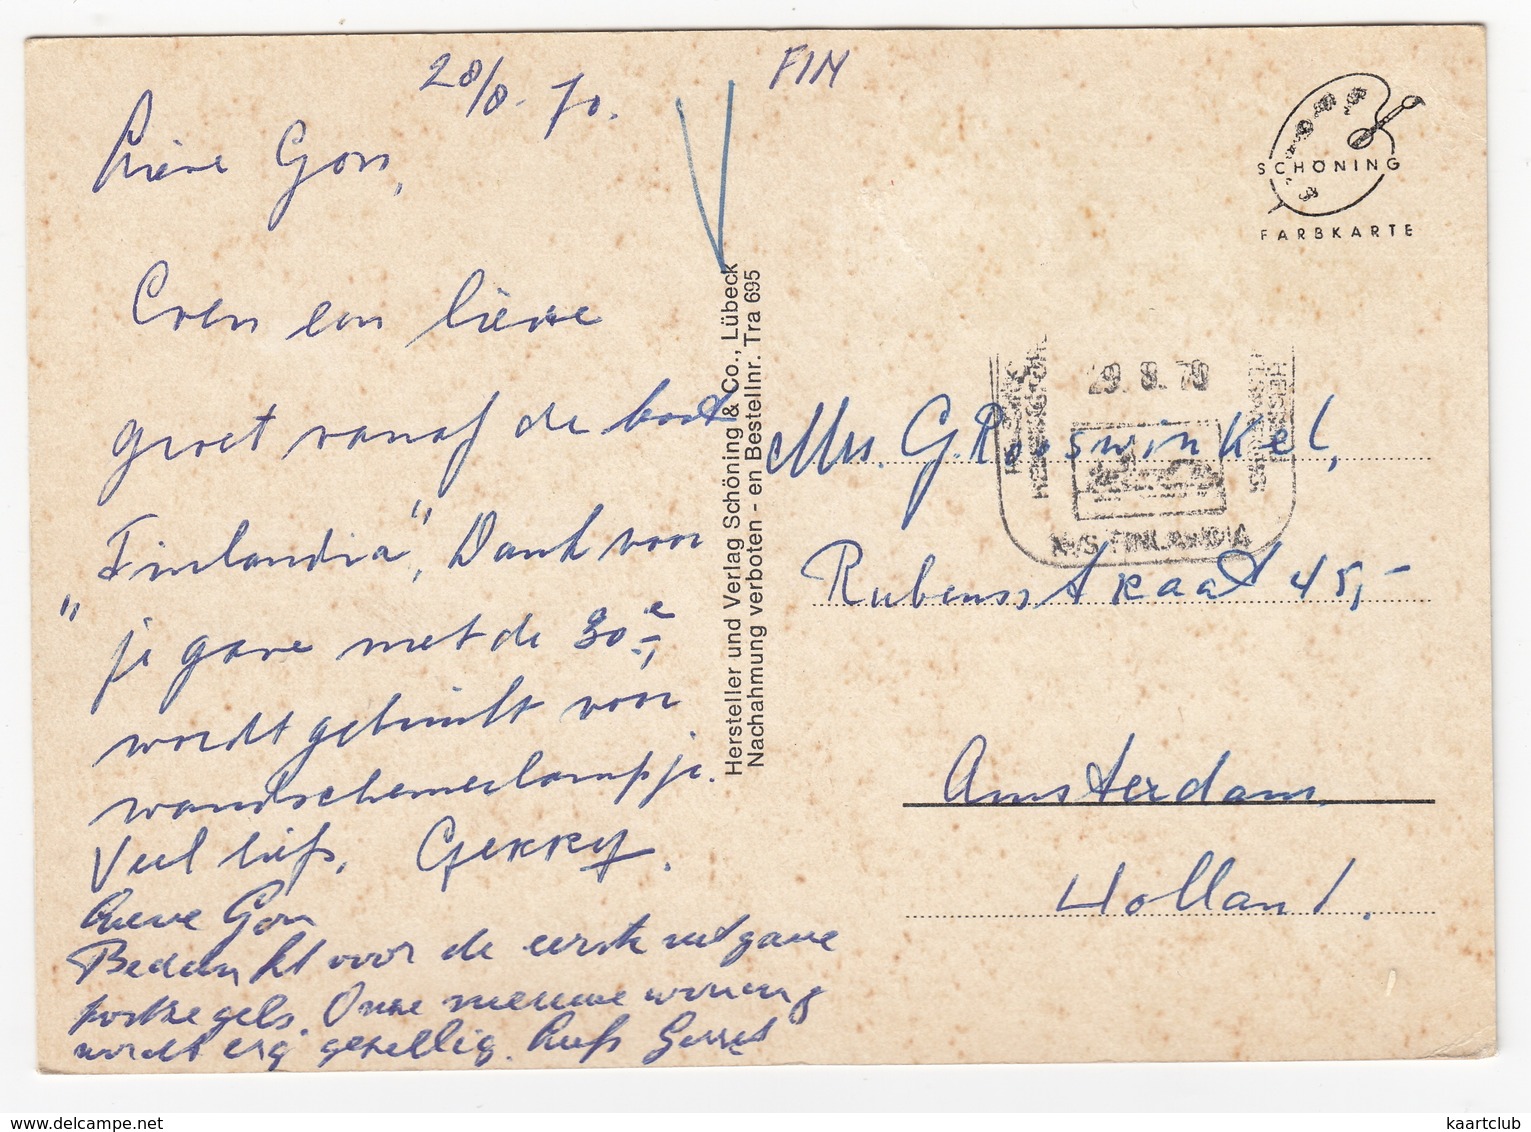 28/8-70.
FIN
Lieve Gon,
Even een lieve
groet vanaf de boot
"Finlandia", Dank voor
je gave met de 30e,
wordt gebruikt voor
wandschemerlampje.
Veel liefs, GERRY.
Lieve Gon
Bedankt voor de eerste uitgave
postzegels. Onze nieuwe woning
wordt erg gezellig. Liefs Gerret
Hersteller und Verlag Schöning & Co., Lübeck
Nachahmung verboten - en Bestellnr. Tra 695
SCHÖNING
FARBKARTE
29. 8. 70
M/S FINLANDIA
Mrs. G. Rooswinkel,
Rubensstraat 45,-
Amsterdam.
Holland.
www.delcampe.net
kaartclub